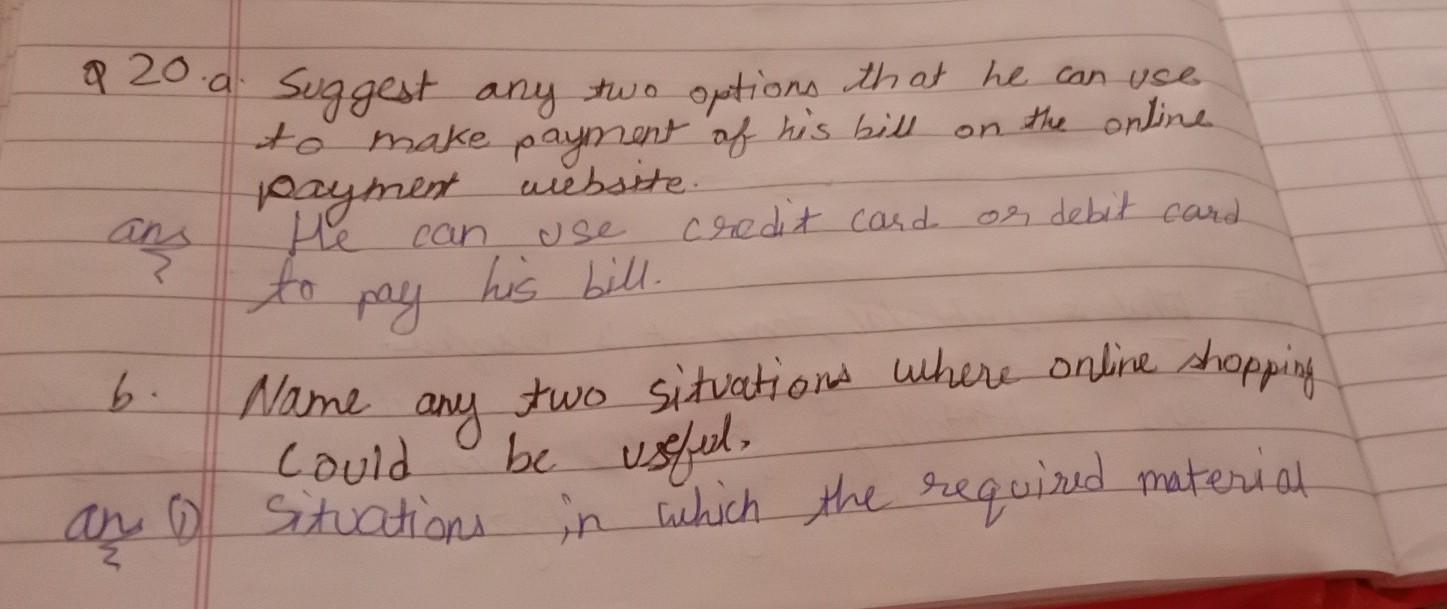 Q 20.a. Suggest any two options that he can use
to make payment of his bill on the online
payment website.
ans He can use credit card or debit card
to pay his bill.
b. Name any two situations where online shopping
could be useful.
ans (i) Situations in which the required material